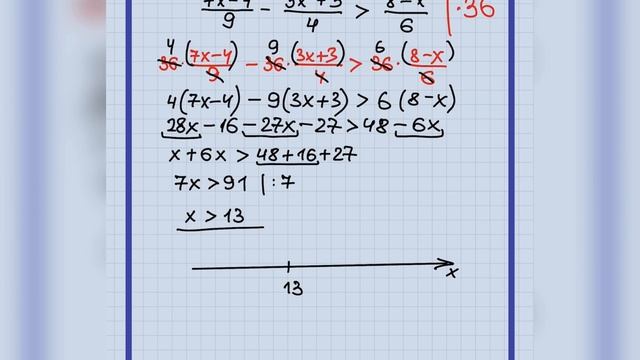 (7x-4)/9 - (3x+3)/4 > (8-x)/6 | ·36
4 9 6
36·(7x-4)/9 - 36·(3x+3)/4 > 36·(8-x)/6
4(7x-4) - 9(3x+3) > 6(8-x)
28x - 16 - 27x - 27 > 48 - 6x
x + 6x > 48 + 16 + 27
7x > 91 | :7
x > 13
x
13